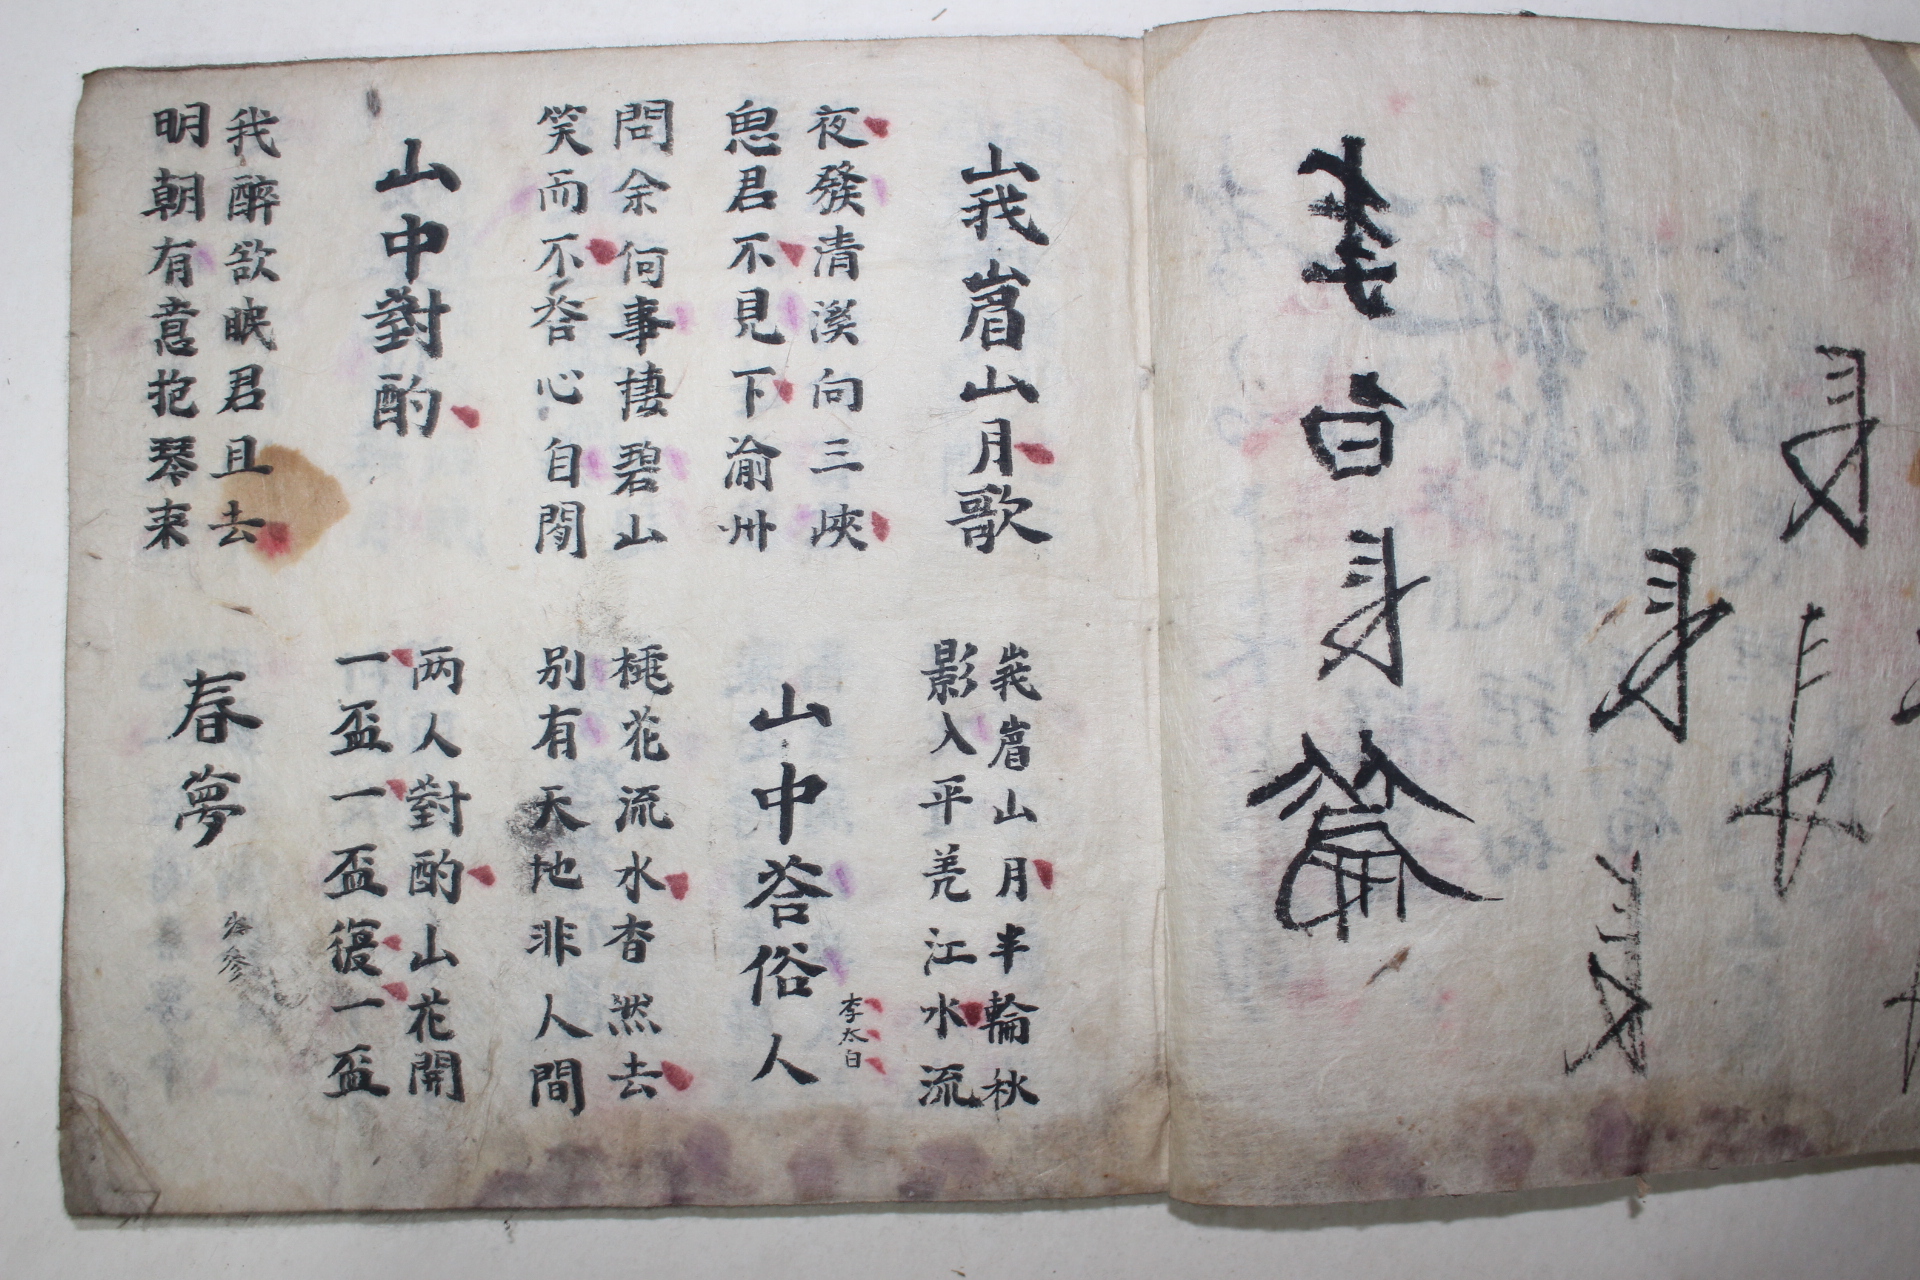 李白身篇
身
身
峩嵋山月歌
峩嵋山月半輪秋
影入平羌江水流
夜發清溪向三峽
思君不見下渝州
山中荅俗人
李太白
問余何事棲碧山
笑而不荅心自閒
桃花流水杳然去
別有天地非人間
山中對酌
两人對酌山花開
一盃一盃復一盃
我醉欲眠君且去
明朝有意抱琴来
春夢
岑參